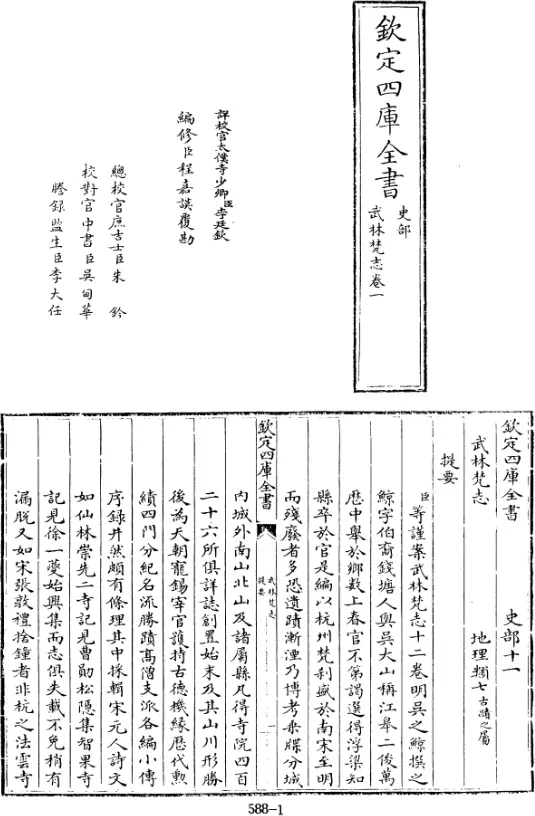 欽定四庫全書
史部
武林梵志卷一
詳校官太僕寺少卿臣李廷欽
編修臣程嘉謨覆勘
總校官庶吉士臣朱鈐
校對官中書臣吳甸華
謄錄監生臣李大任
欽定四庫全書
史部十一
武林梵志
地理類七古蹟之屬
提要
臣等謹案武林梵志十二卷明吳之鯨撰之
鯨字伯裔錢塘人與吳大山稱江皋二俊萬
厯中舉於鄉數上春官不第謁選得浮梁知
縣卒於官是編以杭州梵刹盛於南宋至明
而殘廢者多恐遺蹟漸湮乃博考乘牒分城
欽定四庫全書
武林梵志
提要
内城外南山北山及諸屬縣凡得寺院四百
二十六所俱詳誌創置始末及其山川形勝
後為天朝寵錫宰官護持古德機緣歴代勲
績四門分紀名流勝蹟髙僧支派各編小傳
序録井然頗有條理其中採輯宋元人詩文
如仙林崇先二寺記見曹勛松隠集智果寺
記見徐一夔始興集而志俱失載不免稍有
漏脱又如宋張敦禮捨鐘者非杭之法雲寺
588-1